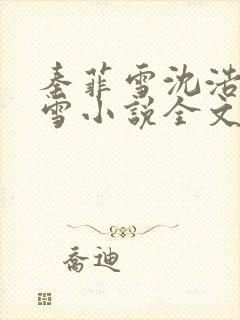 秦菲雪沈浩
雪小说全文
乔迪